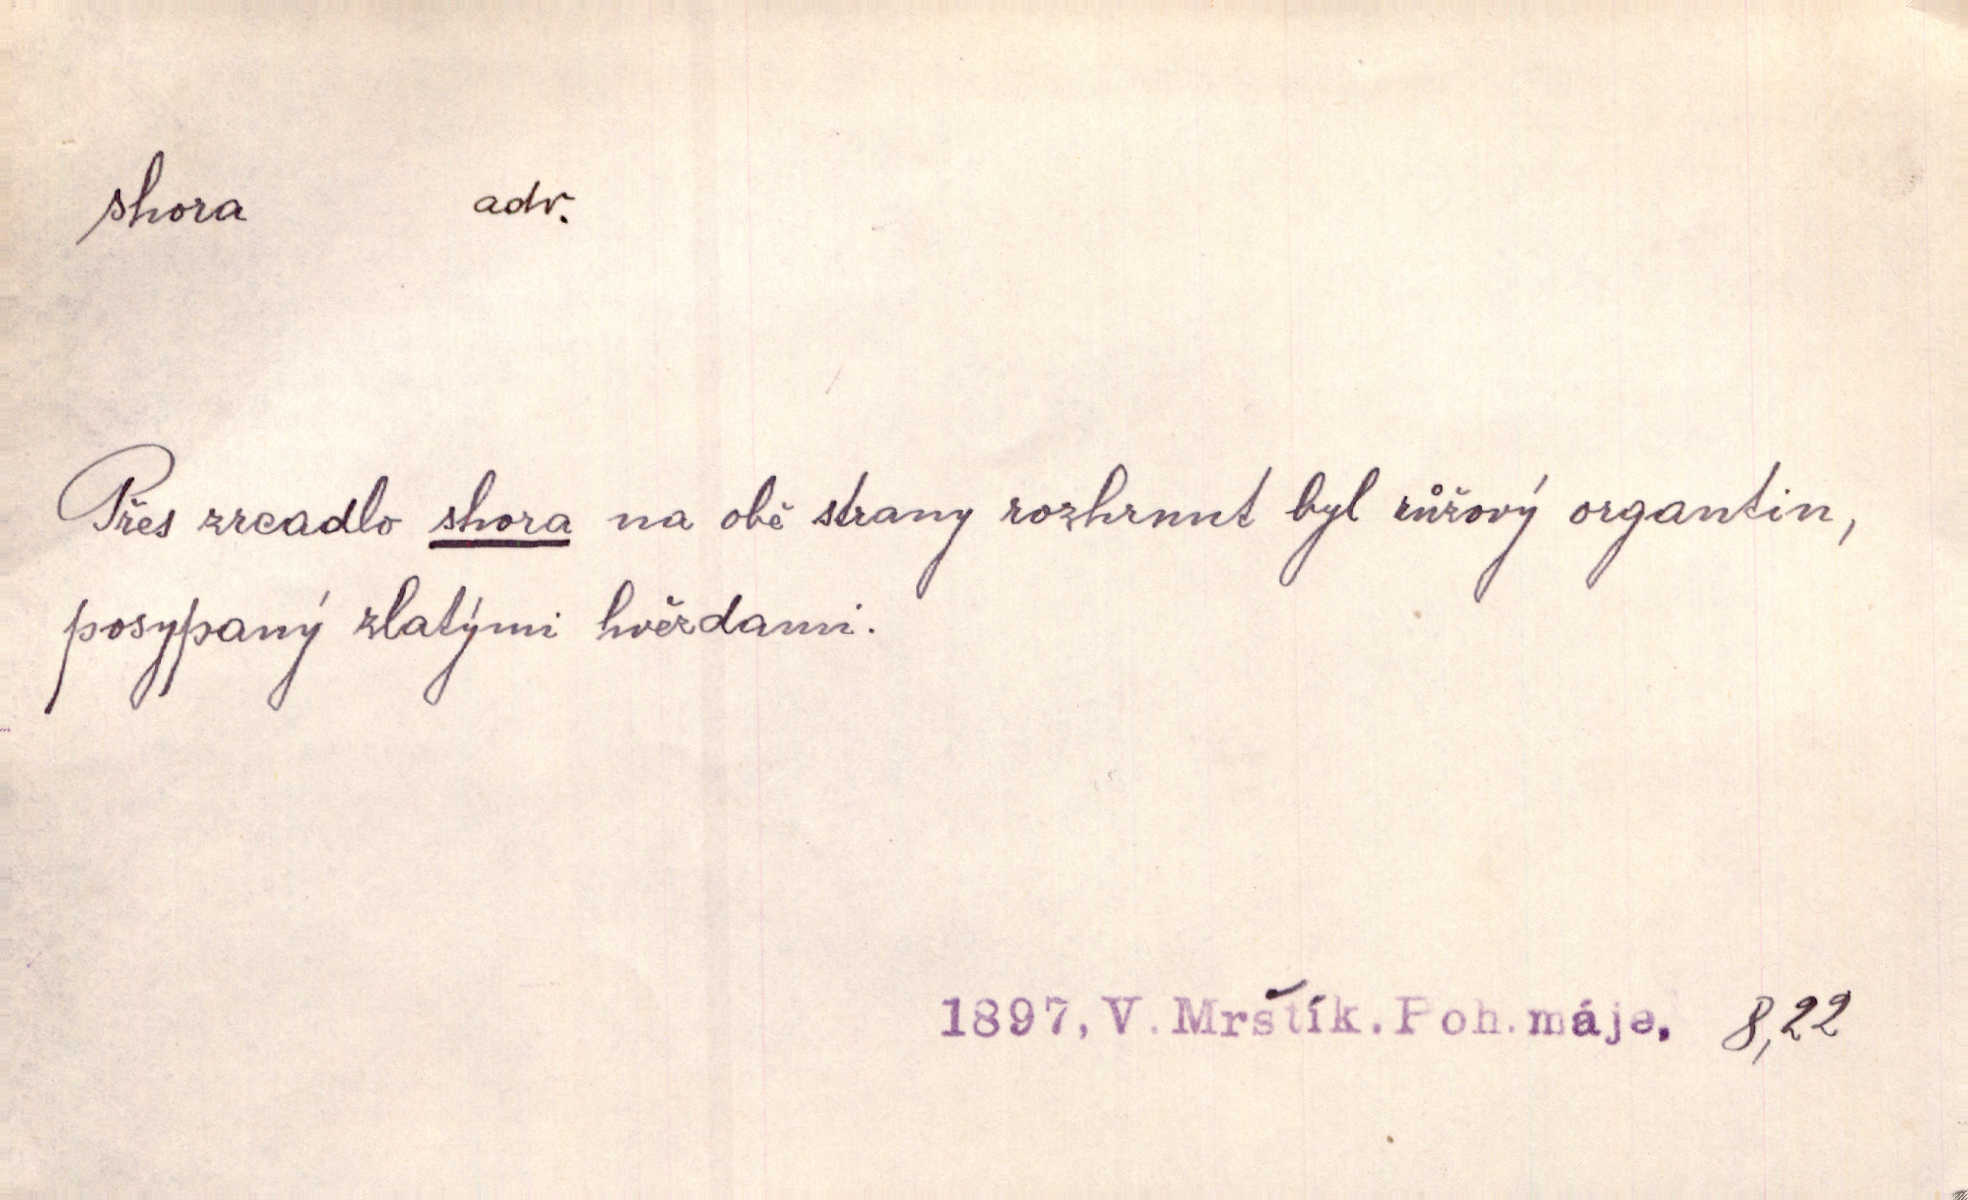 shora adv.
Přes zrcadlo shora na obě strany rozhrnut byl růžový organtin,
posypaný zlatými hvězdami.
1897, V. Mrštík. Poh. máje. 8,22